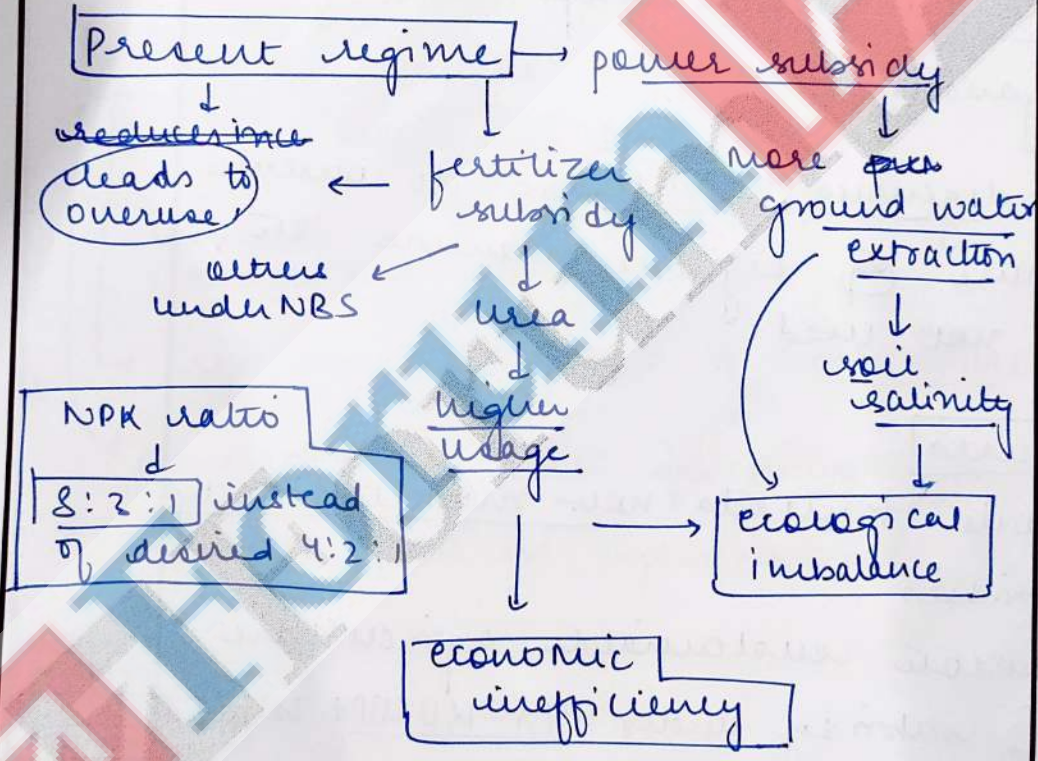 Present regime → power subsidy
reduces ince
leads to
overuse
fertilizer
subsidy
more
ground water
extraction
others
under NBS
urea
soil
salinity
NPK ratio
8:2:1 instead
of desired 4:2:1
higher
usage
ecological
imbalance
economic
inefficiency
ForumIA